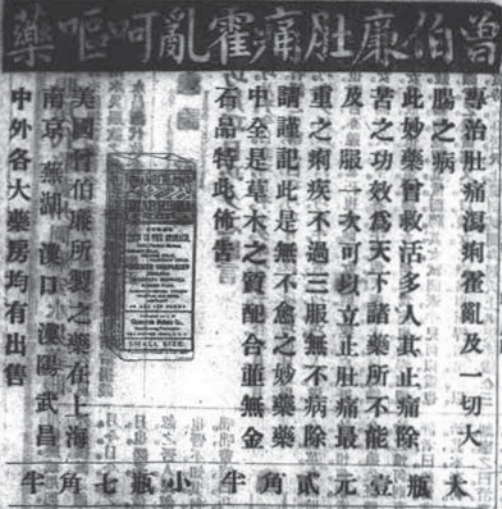 曾伯廉肚痛霍亂呵嘔藥
專治肚痛瀉痢霍亂及一切大
腸之病
此妙藥曾救活多人其止痛除
苦之功效為天下諸藥所不能
及 服一次可以立止肚痛最
重之痢疾不過三服無不病除
請謹記此是無不愈之妙藥藥
中全是草木之質配合並無金
石品特此佈告
PAIN IN THE STOMACH,
SMALL SIZE.
美國曾伯廉所製之藥在上海
南京 蕪湖 漢口 漢陽 武昌
中外各大藥房均有出售
大瓶壹元貳角半 小瓶七角半